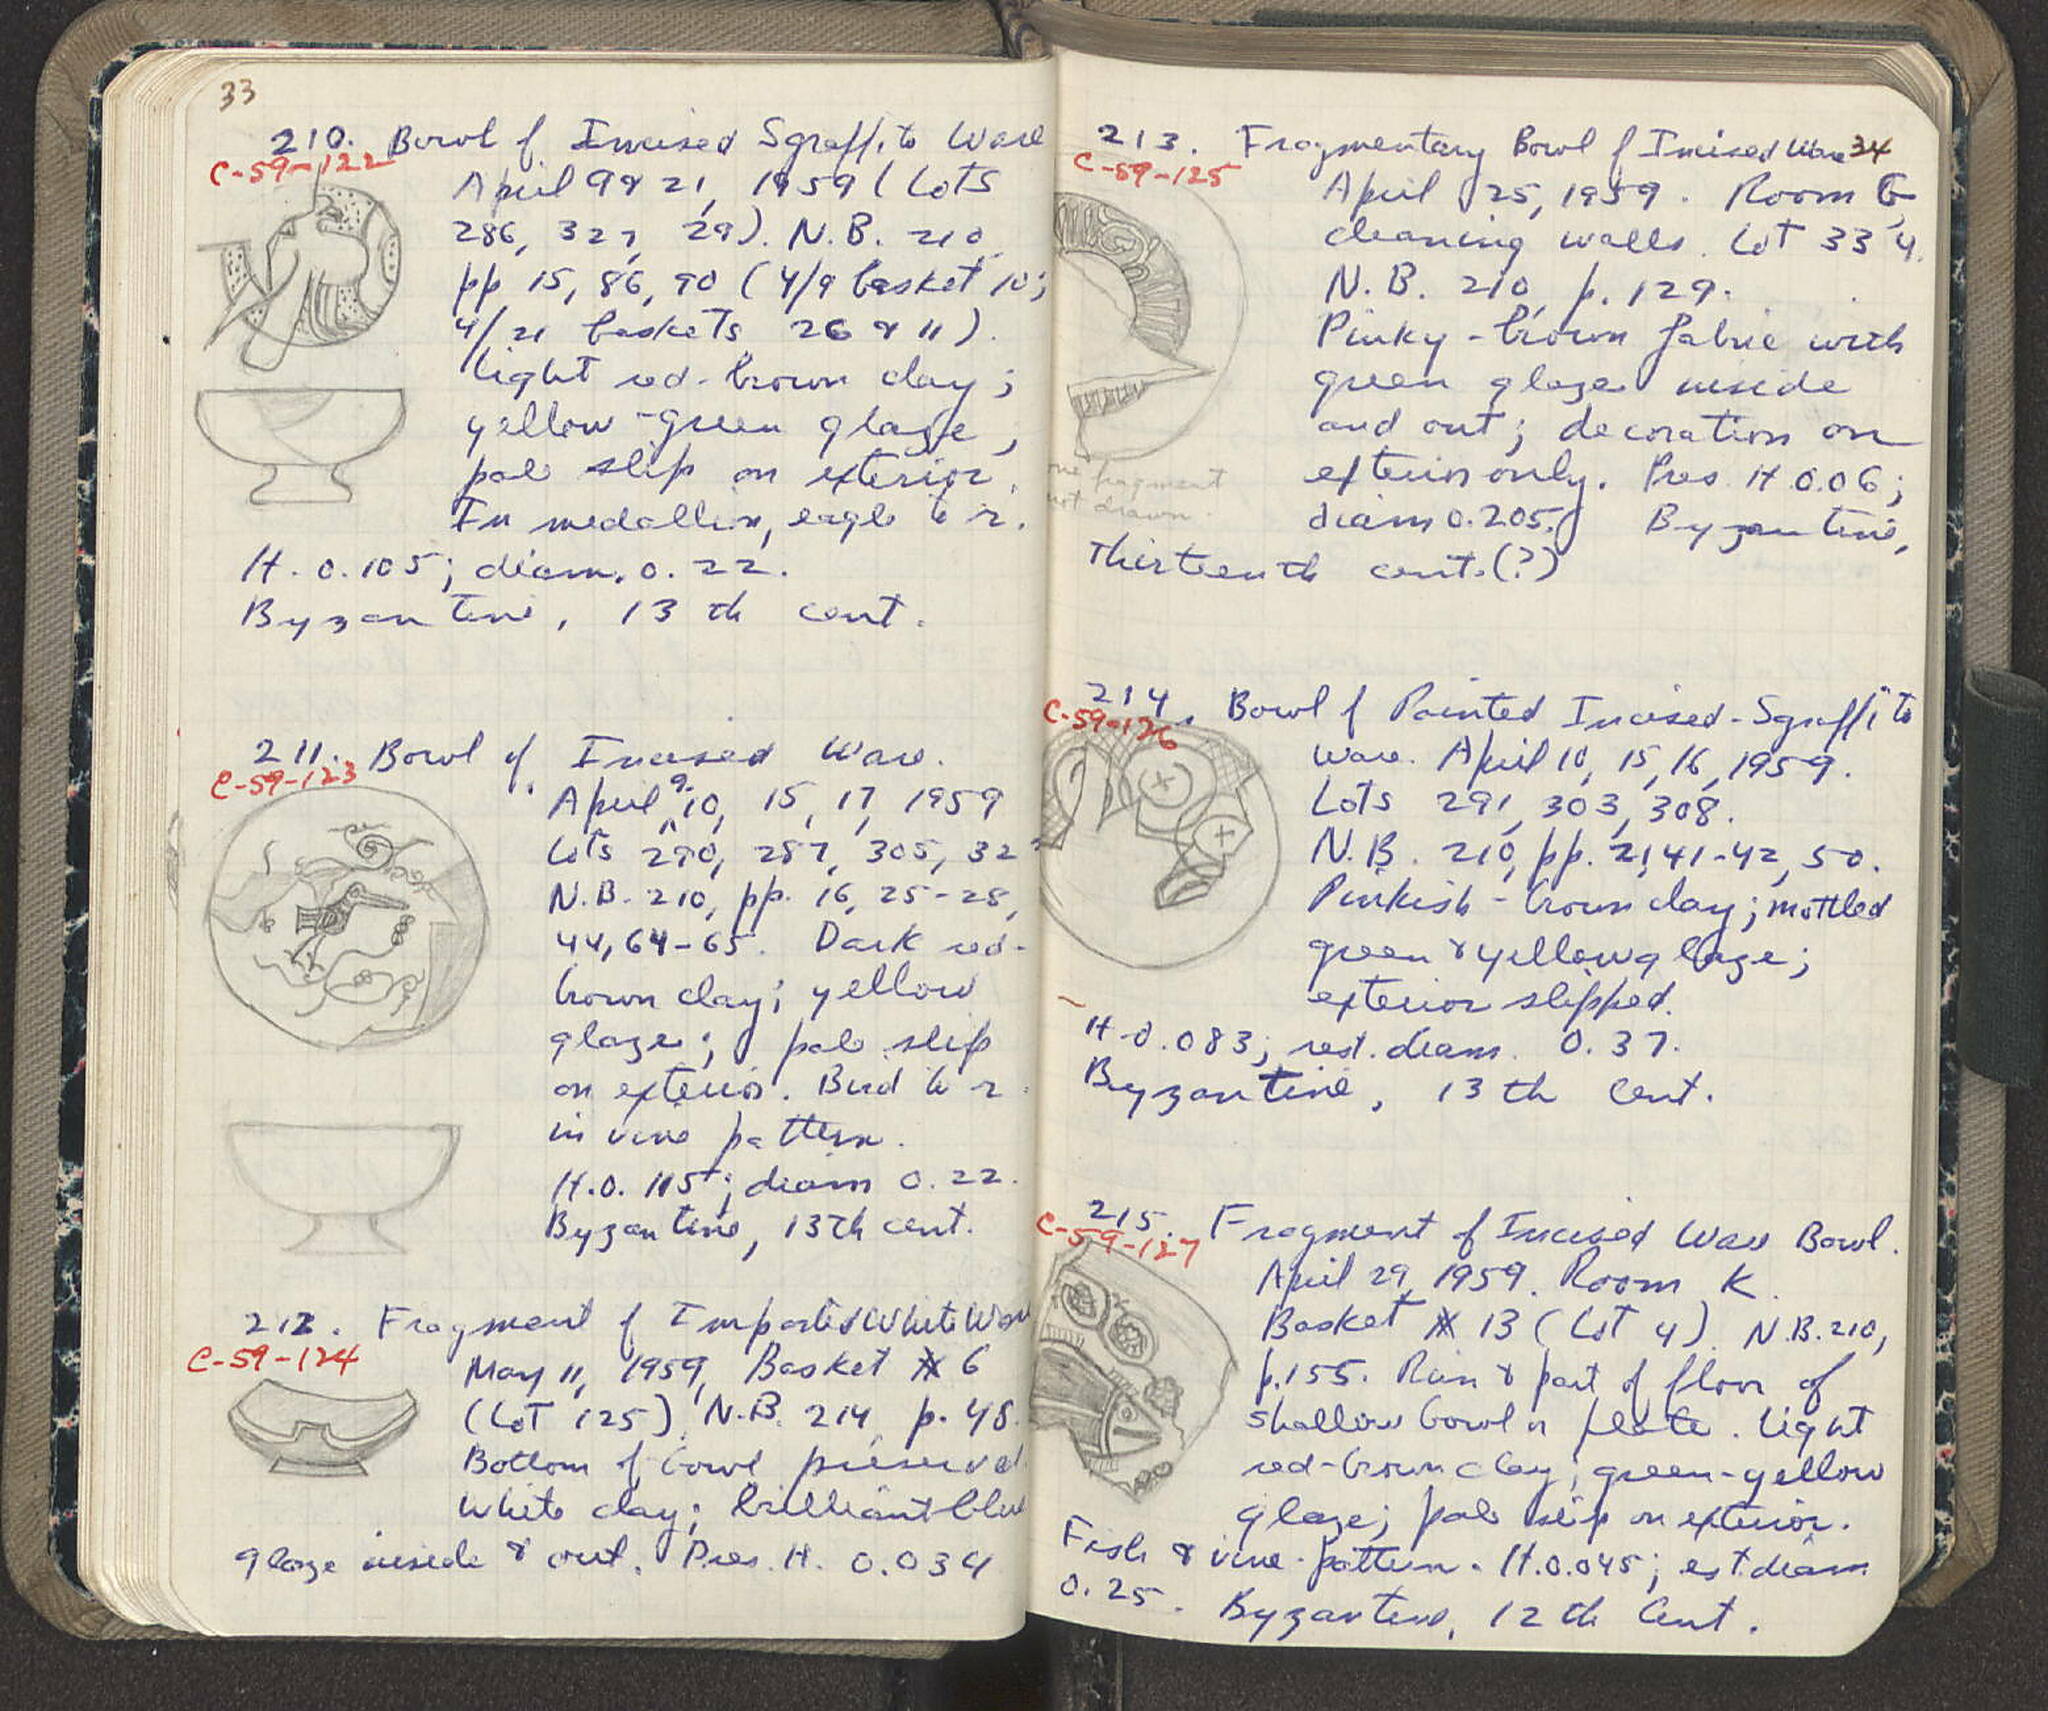 33
210. Bowl of Incised Sgraffito Ware
C-59-122
April 9 & 21, 1959 (Lots
286, 327, 29). N.B. 210,
pp 15, 86, 90 (4/9 basket 10;
4/21 baskets 26 & 11).
Light red-brown clay;
yellow-green glaze,
pale slip on exterior.
In medallion, eagle to r.
H. 0.105; diam. 0.22.
Byzantine, 13th cent.
211. Bowl of Incised Ware.
C-59-123
April 9, 10, 15, 17, 1959
Lots 290, 287, 305, 32
N.B. 210, pp. 16, 25-28,
44, 64-65. Dark red-
brown clay; yellow
glaze; pale slip
on exterior. Bird to r.
in vine pattern.
H. 0.115; diam 0.22.
Byzantine, 13th cent.
212. Fragment of Imported White Ware
C-59-124
May 11, 1959, Basket # 6
(Lot 125). N.B. 214, p. 48.
Bottom of bowl preserved.
White clay; brilliant blue
glaze inside & out. Pres. H. 0.034
34
213. Fragmentary Bowl of Incised Ware
C-59-125
April 25, 1959. Room G,
cleaning walls. Lot 334.
N.B. 210, p. 129.
Pinky-brown fabric with
green glaze inside
and out; decoration on
exterior only. Pres. H 0.06;
one fragment
not drawn.
diam 0.205. Byzantine,
Thirteenth cent. (?)
214. Bowl of Painted Incised-Sgraffito
C-59-126
ware. April 10, 15, 16, 1959.
Lots 291, 303, 308.
N.B. 210, pp. 21, 41-42, 50.
Pinkish-brown clay; mottled
green & yellow glaze;
exterior slipped.
H. 0.083; rest. diam. 0.37.
Byzantine, 13th cent.
215. Fragment of Incised Ware Bowl.
C-59-127
April 29, 1959. Room K.
Basket # 13 (Lot 4). N.B. 210,
p. 155. Rim & part of floor of
shallow bowl or plate. Light
red-brown clay; green-yellow
glaze; pale slip on exterior.
Fish & vine-pattern. H. 0.045; est. diam
0.25. Byzantine, 12th Cent.